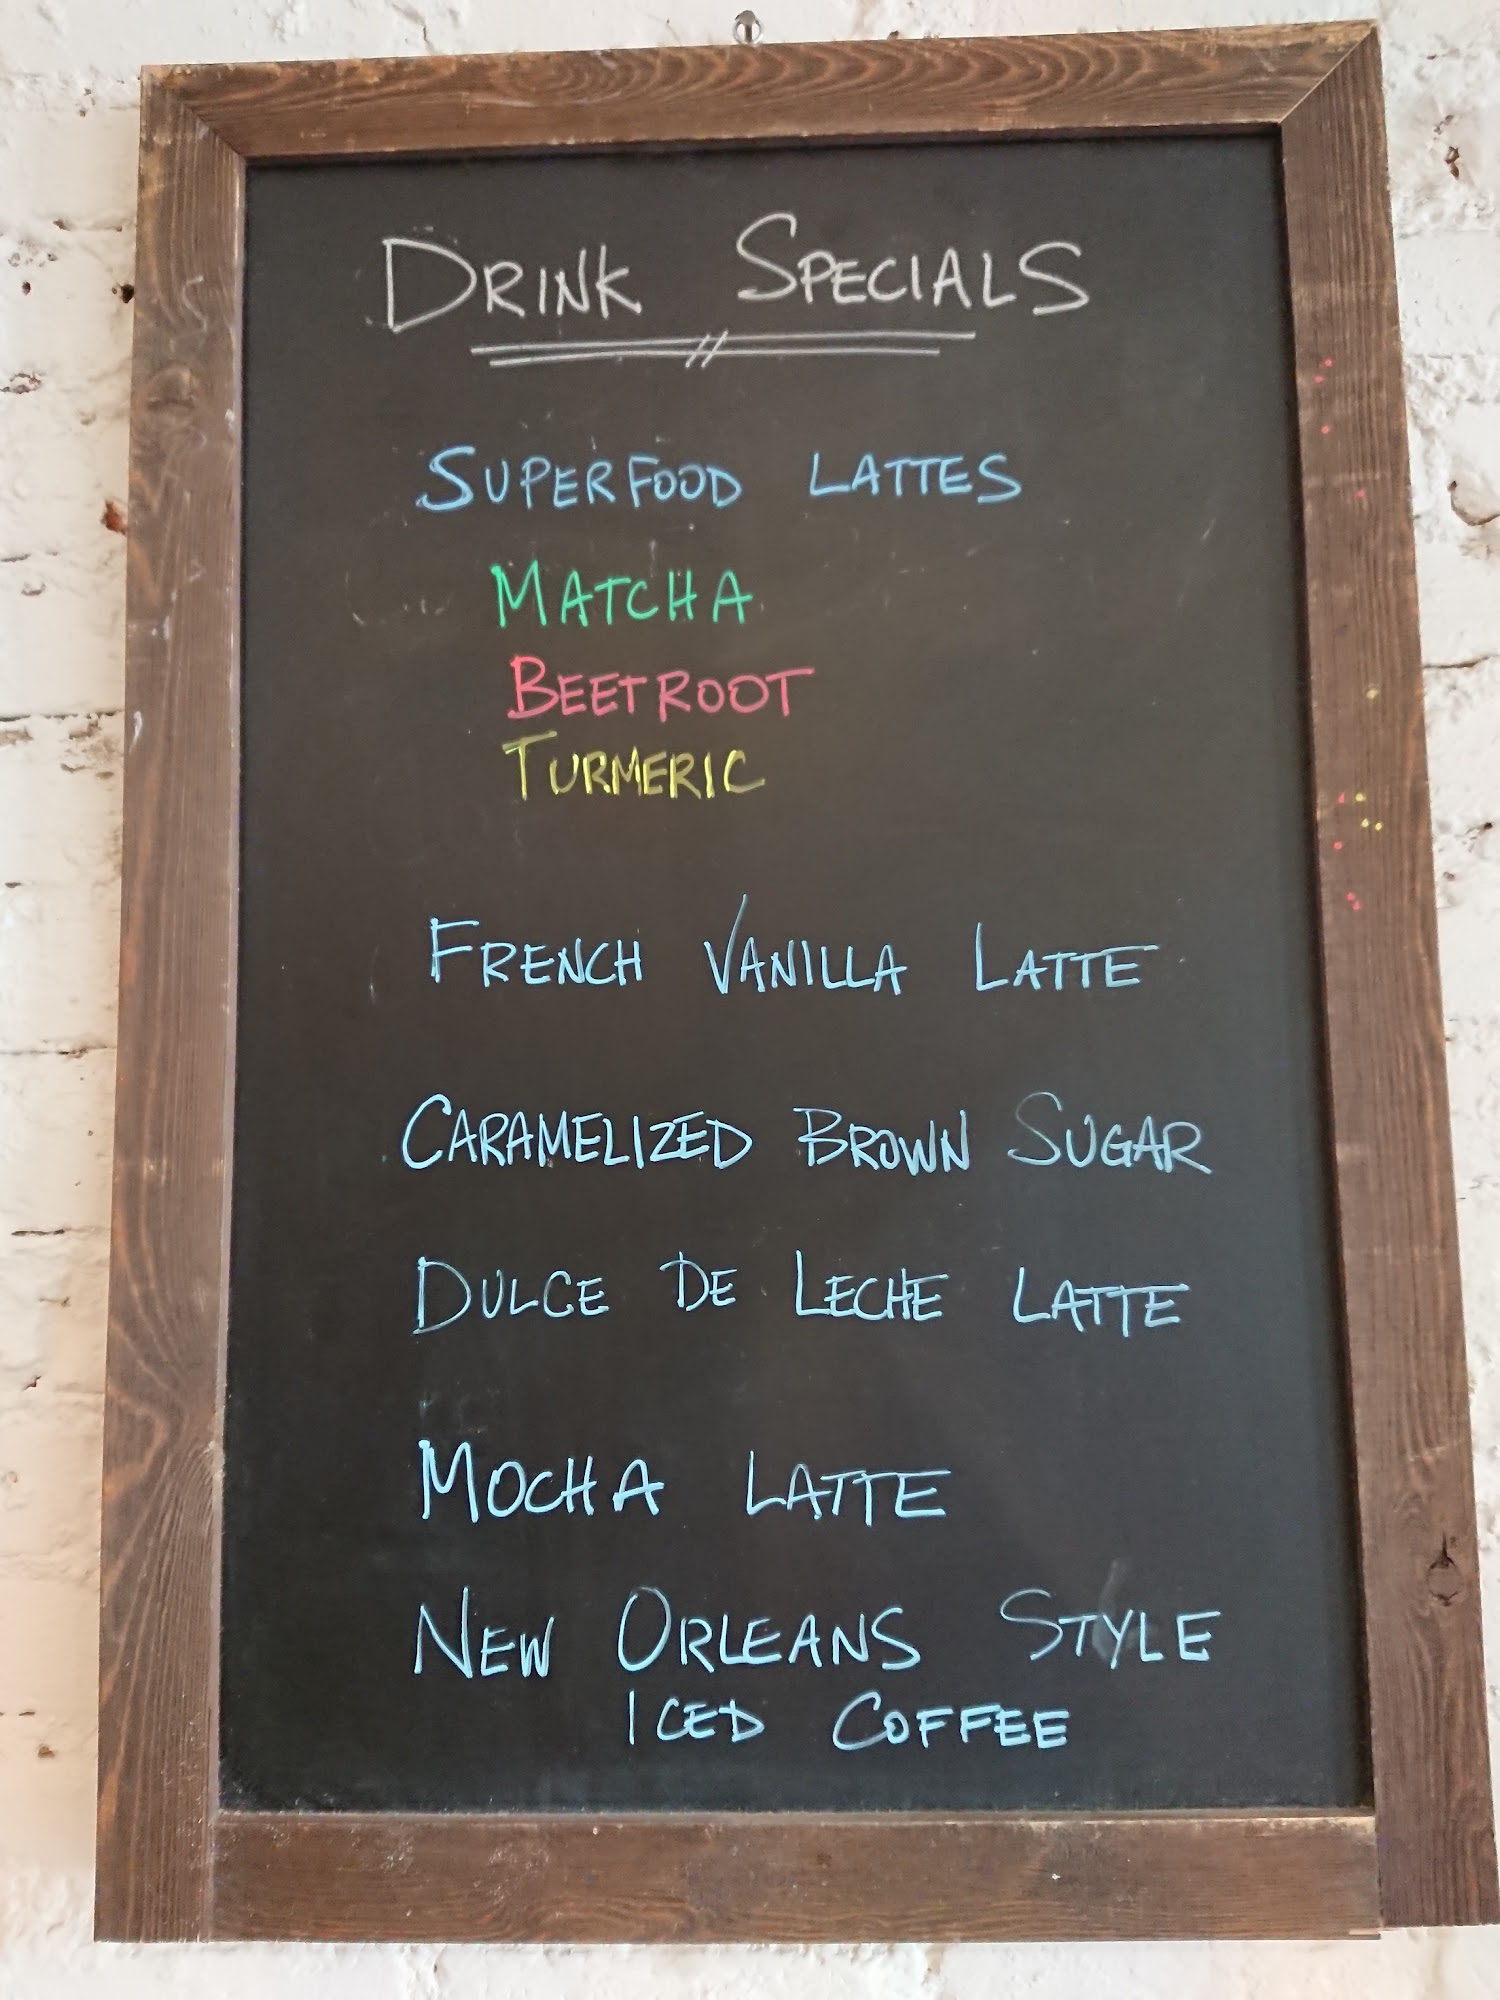 DRINK SPECIALS
SUPERFOOD LATTES
MATCHA
BEETROOT
TURMERIC
FRENCH VANILLA LATTE
CARAMELIZED BROWN SUGAR
DULCE DE LECHE LATTE
MOCHA LATTE
NEW ORLEANS STYLE
ICED COFFEE